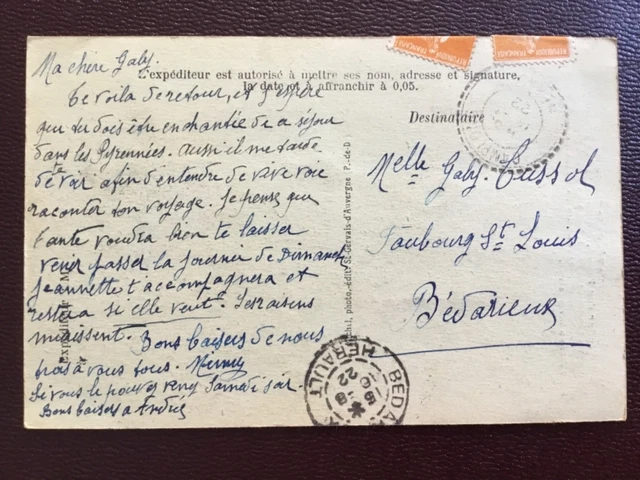 Ma chère Gaby.
L'expéditeur est autorisé à mettre ses nom, adresse et signature,
la date et à affranchir à 0,05.
Te voila de retour, et j'espère
que tu dois être enchantée de a séjour
dans les Pyrennées. aussi il me tarde
de te voir afin d'entendre de vive voie
raconter ton voyage. Je pense que
tante voudra bien te laisser
venir passer la journee de Dimanche
Jeannette t'accompagnera et
restera si elle veut. Les raisins
murissent. Bons baisers de nous
trois à vous tous.
Si vous le pouvez venez Samedi soir
Bons baisers a André
Destinataire
Melle Gaby Cussol
Faubourg St Louis
Bédarieux
photo.-édit. St-Gervais-d'Auvergne P.-de-D
REPUBLIQUE FRANÇAISE
REPUBLIQUE FRANÇAISE
BEDARIEUX
HERAULT
22